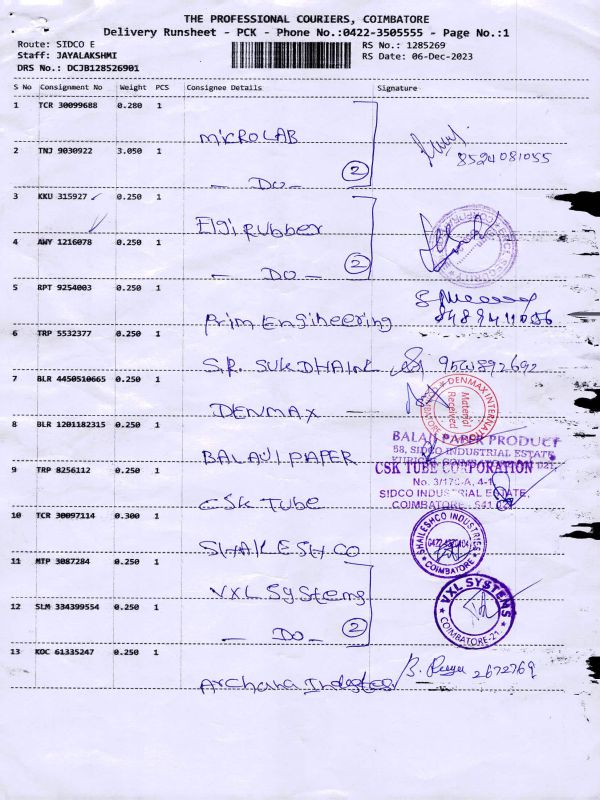 THE PROFESSIONAL COURIERS, COIMBATORE
Delivery Runsheet - PCK - Phone No.:0422-3505555 - Page No.:1
Route: SIDCO E
RS No.: 1285269
Staff: JAYALAKSHMI
RS Date: 06-Dec-2023
DRS No.: DCJB128526901
S No Consignment No Weight PCS Consignee Details Signature
1 TCR 30099688 0.280 1
MICROLAB
8524081055
2 TNJ 9030922 3.050 1
- DO - 2
3 KKU 315927 0.250 1
Elgi Rubber
4 AWY 1216078 0.250 1
- DO - 2
5 RPT 9254003 0.250 1
Prim Engineering
6 TRP 5532377 0.250 1
S.R. SUKDHAINE
7 BLR 4450510665 0.250 1
DENMAX
DENMAX INTERNATIONAL
Material
Received
COIMBATORE
8 BLR 1201182315 0.250 1
BALAJI PAPER
BALAJI PAPER PRODUCT
58, SIDCO INDUSTRIAL ESTATE
9 TRP 8256112 0.250 1
CSK TUBE
CSK TUBE CORPORATION
SIDCO INDUSTRIAL ESTATE,
COIMBATORE - 641 021
10 TCR 30097114 0.300 1
SHAILESH CO
SHAILESHCO INDUSTRIES
COIMBATORE
11 MTP 3087284 0.250 1
VXL Systems
12 SLM 334399554 0.250 1
- DO - 2
VXL SYSTEMS
COIMBATORE-21
13 KOC 61335247 0.250 1
Archana Industries
2672769